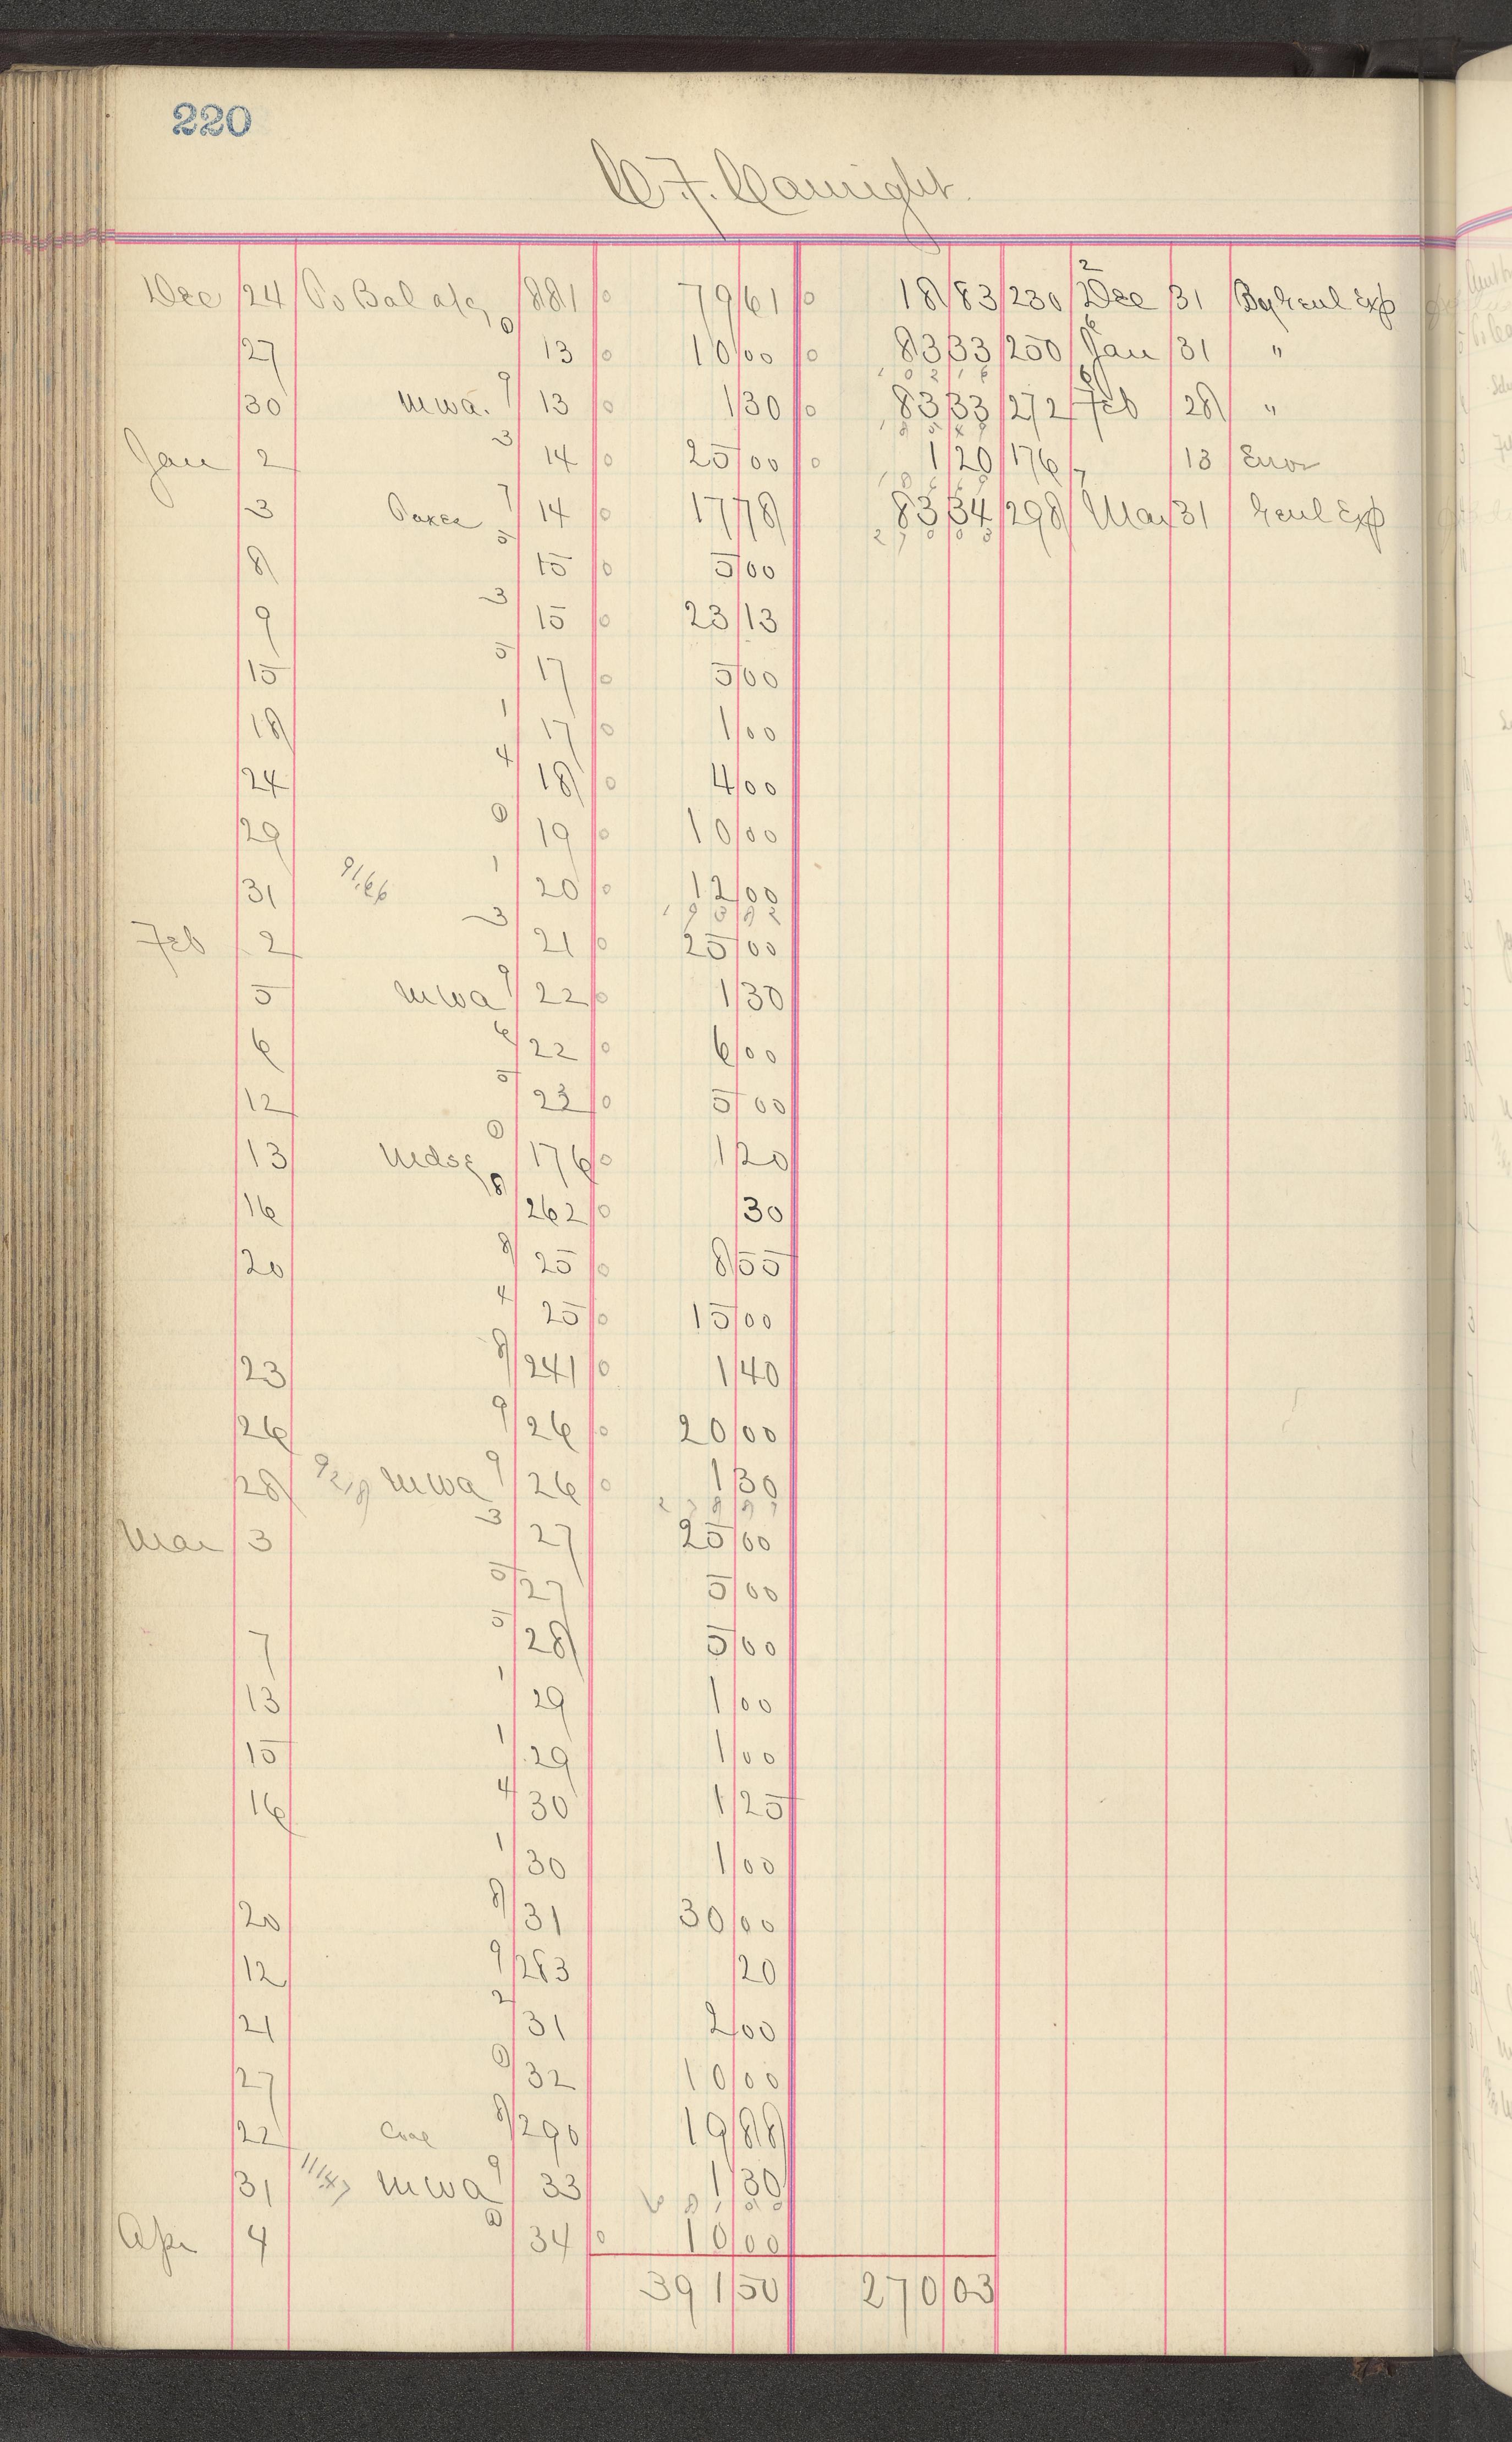 220
C. F. Camight.
Dec 24 To Bal a/c 881 0 79 61 0 18 83 230 Dec 31 By Genl Exp
27 0 13 0 10 00 0 83 33 250 Jan 31 "
30 mwa. 9 13 0 1 30 0 83 33 272 Feb 28 "
Jan 2 3 14 0 25 00 0 1 20 176 13 Error
3 7 14 0 17 78 83 34 298 Mar 31 Genl Exp
8 5 15 0 5 00
9 3 15 0 23 13
15 5 17 0 5 00
18 1 17 0 1 00
24 4 18 0 4 00
29 0 19 0 10 00
31 91.66 1 20 0 12 00
Feb 2 3 21 0 25 00
5 mwa 9 22 0 1 30
6 6 22 0 6 00
12 5 23 0 5 00
13 Mdse 0 176 0 1 20
16 8 262 0 30
20 8 25 0 8 55
4 25 0 15 00
23 8 241 0 1 40
26 9 26 0 20 00
28 mwa 9 26 0 1 30
Mar 3 3 27 25 00
5 27 5 00
7 5 28 5 00
13 1 29 1 00
15 1 29 1 00
16 4 30 1 25
1 30 1 00
20 8 31 30 00
12 9 283 20
21 2 31 2 00
27 0 32 10 00
22 Coal 8 290 19 88
31 111.47 mwa 9 33 1 30
Apr 4 0 34 0 10 00
391 50 270 03